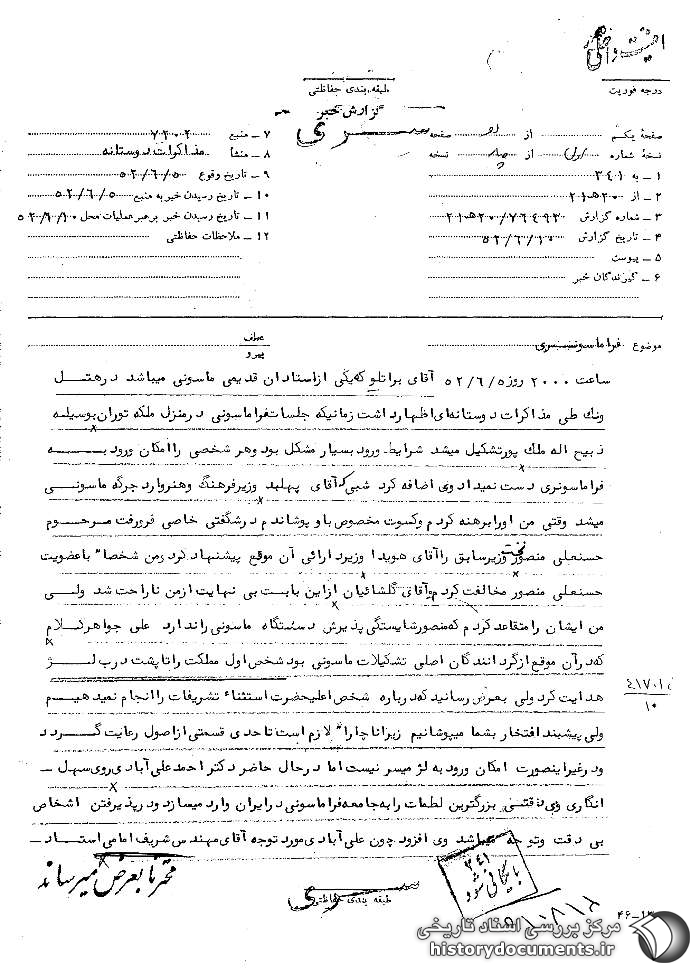 درجه فوریت
طبقه بندی حفاظتی
گزارش خبر
سری
صفحه یکم از صفحه
نسخه شماره از نسخه
۱ – به ۳۴۱
۲ – از ۲۱۵۲۰
۳ – شماره گزارش ۷۶۴۹۲/۲۱۵۲۰
۴ – تاریخ گزارش ۵۲/۶/۱۰
۵ – پیوست
۶ – گیرندگان خبر
۷ – منبع ۷۲۰۲
۸ – منشأ مذاکرات دوستانه
۹ – تاریخ وقوع ۵۲/۶/۵
۱۰ – تاریخ رسیدن خبر به منبع ۵۲/۶/۵
۱۱ – تاریخ رسیدن خبر برهبر عملیات محل ۵۲/۶/۱۰
۱۲ – ملاحظات حفاظتی
موضوع فراماسونری
عطف
پیرو
ساعت ۲۰۰۰ روز ۵۲/۶/۵ آقای براتلو که یکی از استادان قدیمی ماسونی میباشد در هتل
ونک طی مذاکرات دوستانه‌ای اظهار داشت زمانیکه جلسات فراماسونی در منزل ملکه توران بوسیله
ذبیح اله ملک پور تشکیل میشد شرایط ورود بسیار مشکل بود و هر شخصی را امکان ورود به
فراماسونری دست نمیداد وی اضافه کرد شبی که آقای پهلبد وزیر فرهنگ و هنر وارد جرگه ماسونی
میشد وقتی من او را برهنه کردم و کسوت مخصوص باو پوشاندم در شگفتی خاصی فرو رفت مرحوم
حسنعلی منصور نخست وزیر سابق را آقای هویدا وزیر دارائی آن موقع پیشنهاد کرد و من شخصا" با عضویت
حسنعلی منصور مخالفت کردم و آقای گلشائیان از این بابت بی نهایت از من ناراحت شد ولی
من ایشان را متقاعد کردم که منصور شایستگی پذیرش دستگاه ماسونی را ندارد علی جواهر کلام
که در آن موقع از گردانندگان اصلی تشکیلات ماسونی بود شخص اول مملکت را تا پشت درب لژ
هدایت کرد ولی بعرض رسانید که درباره شخص اعلیحضرت استثناء تشریفات را انجام نمیدهیم
ولی پیشبند افتخار بشما میپوشانیم زیرا ناچارا" لازم است تا حدی قسمتی از اصول رعایت گردد
و در غیر اینصورت امکان ورود به لژ میسر نیست اما در حال حاضر دکتر احمد علی آبادی روی سهل –
انگاری و بی دقتی بزرگترین لطمات را به جامعه فراماسونی در ایران وارد میسازد و در پذیرفتن اشخاص
بی دقت و توجه میباشد وی افزود چون علی آبادی مورد توجه آقای مهندس شریف امامی استاد –
محترما بعرض میرساند
طبقه بندی حفاظتی
سری
۳۴۱
بایگانی شود
مرکز بررسی اسناد تاریخی
historydocuments.ir